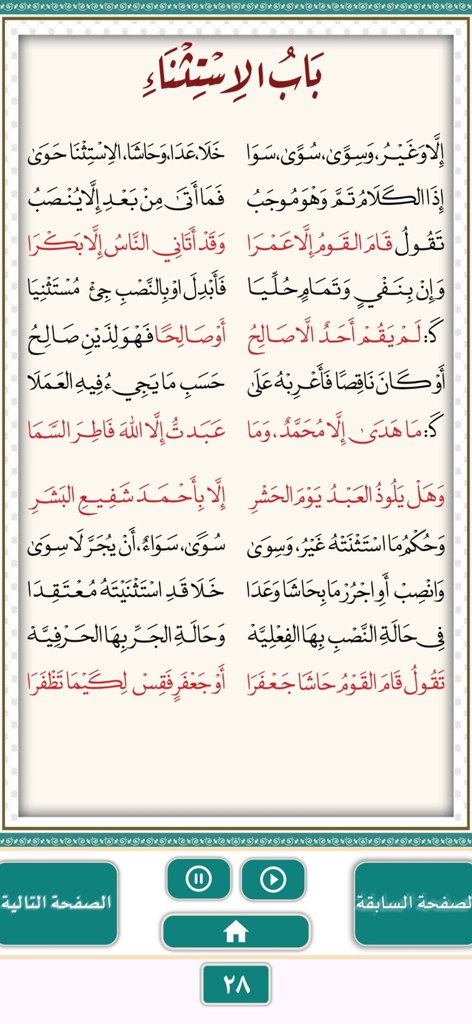 بَابُ الِاسْتِثْنَاءِ
إِلَّا وَغَيْرُ، وَسِوًى، سُوًى، سَوَا خَلَا، عَدَا، وَحَاشَا، الِاسْتِثْنَا حَوَى
إِذَا الكَلَامُ تَمَّ وَهْوَ مُوجَبُ فَمَا أَتَى مِنْ بَعْدِ إِلَّا يُنْصَبُ
تَقُولُ قَامَ القَومُ إِلَّا عَمْرَا وَقَدْ أَتَانِي النَّاسُ إِلَّا بَكْرَا
وَإِنْ بِنَفْيٍ وَتَمَامٍ حُلِّيَا فَأَبْدِلَ اوْ بِالنَّصْبِ جِئْ مُسْتَثْنِيَا
كَـ: لَمْ يَقُمْ أَحَدٌ الَّا صَالِحُ أَوْ صَالِحًا فَهْوَ لِذَيْنِ صَالِحُ
أَوْ كَانَ نَاقِصًا فَأَعْرِبْهُ عَلَى حَسَبِ مَا يَجِيءُ فِيهِ العَمَلَا
كَـ: مَا هَدَى إِلَّا مُحَمَّدٌ، وَمَا عَبَدتُّ إِلَّا اللهَ فَاطِرَ السَّمَا
وَهَلْ يَلُوذُ العَبْدُ يَوْمَ الحَشْرِ إِلَّا بِأَحْمَدَ شَفِيعِ البَشَرِ
وَحُكْمُ مَا اسْتَثْنَتْهُ غَيْرُ، وَسِوَى سُوًى، سَوَاءٌ، أَنْ يُجَرَّ لَا سِوَى
وَانْصِبْ أَوِ اجْرُرْ مَا بِحَاشَا وَعَدَا خَلَا قَدِ اسْتَثْنَيْتَهُ مُعْتَقِدَا
فِي حَالَةِ النَّصْبِ بِهَا الفِعْلِيَّهْ وَحَالَةِ الجَرِّ بِهَا الحَرْفِيَّهْ
تَقُولُ قَامَ القَوْمُ حَاشَا جَعْفَرَا أَوْ جَعْفَرٍ فَقِسْ لِكَيْمَا تَظْفَرَا
لصفحة السابقة
الصفحة التالية
٢٨